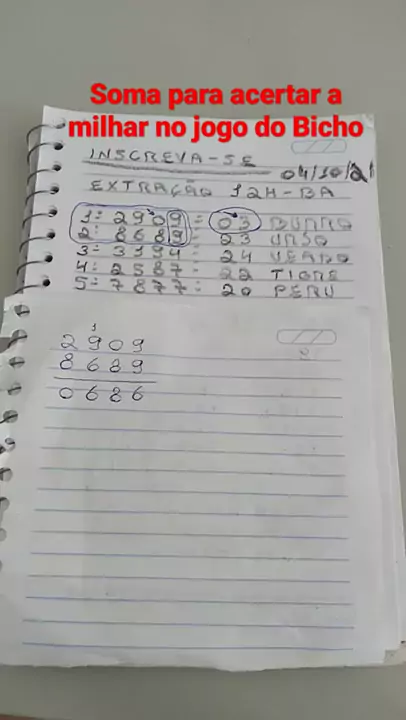 Soma para acertar a
milhar no jogo do Bicho
INSCREVA-SE
04/10/21
EXTRAÇÃO 12H-BA
1=2909= 03 BURRO
2=8689= 23 URSO
3=3394= 24 VEADO
4=2587= 22 TIGRE
5=7877= 20 PERU
1
2909
8689
0686